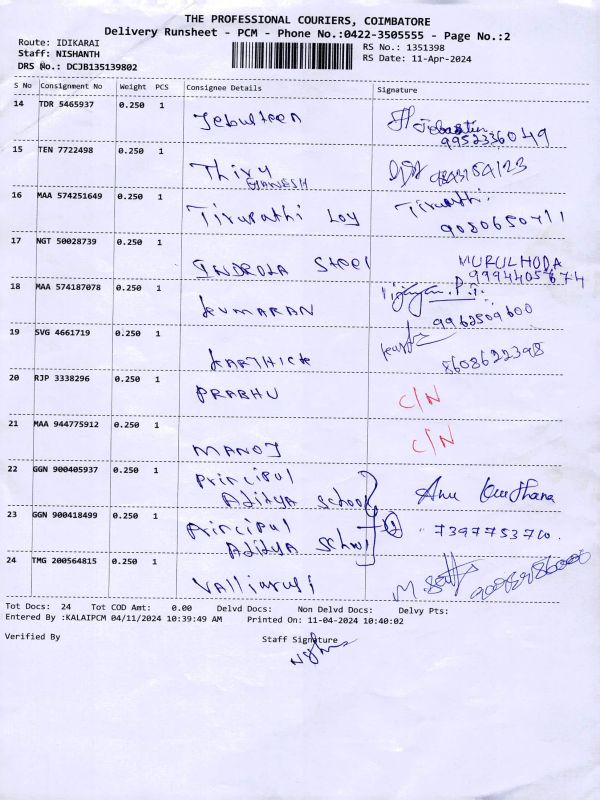 THE PROFESSIONAL COURIERS, COIMBATORE
Delivery Runsheet - PCM - Phone No.:0422-3505555 - Page No.:2
Route: IDIKARAI
Staff: NISHANTH
DRS No.: DCJB135139802
RS No.: 1351398
RS Date: 11-Apr-2024
S No Consignment No Weight PCS Consignee Details Signature
14 TDR 5465937 0.250 1
9952336049
15 TEN 7722498 0.250 1 Thiru
GANESH
16 MAA 574251649 0.250 1 Tirupathi Loy
Tirupathi
17 NGT 50028739 0.250 1 INDROLA Steel
MURULHODA
9994405674
18 MAA 574187078 0.250 1 KUMARAN
9962509600
19 SVG 4661719 0.250 1 KARTHICK
8608622398
20 RJP 3338296 0.250 1 PRABHU C/N
21 MAA 944775912 0.250 1 MANOJ C/N
22 GGN 900405937 0.250 1 Principul
Aditya School
23 GGN 900418499 0.250 1 Principul
Aditya School
24 TMG 200564815 0.250 1
Tot Docs: 24 Tot COD Amt: 0.00 Delvd Docs: Non Delvd Docs: Delvy Pts:
Entered By :KALAIPCM 04/11/2024 10:39:49 AM Printed On: 11-04-2024 10:40:02
Verified By Staff Signature